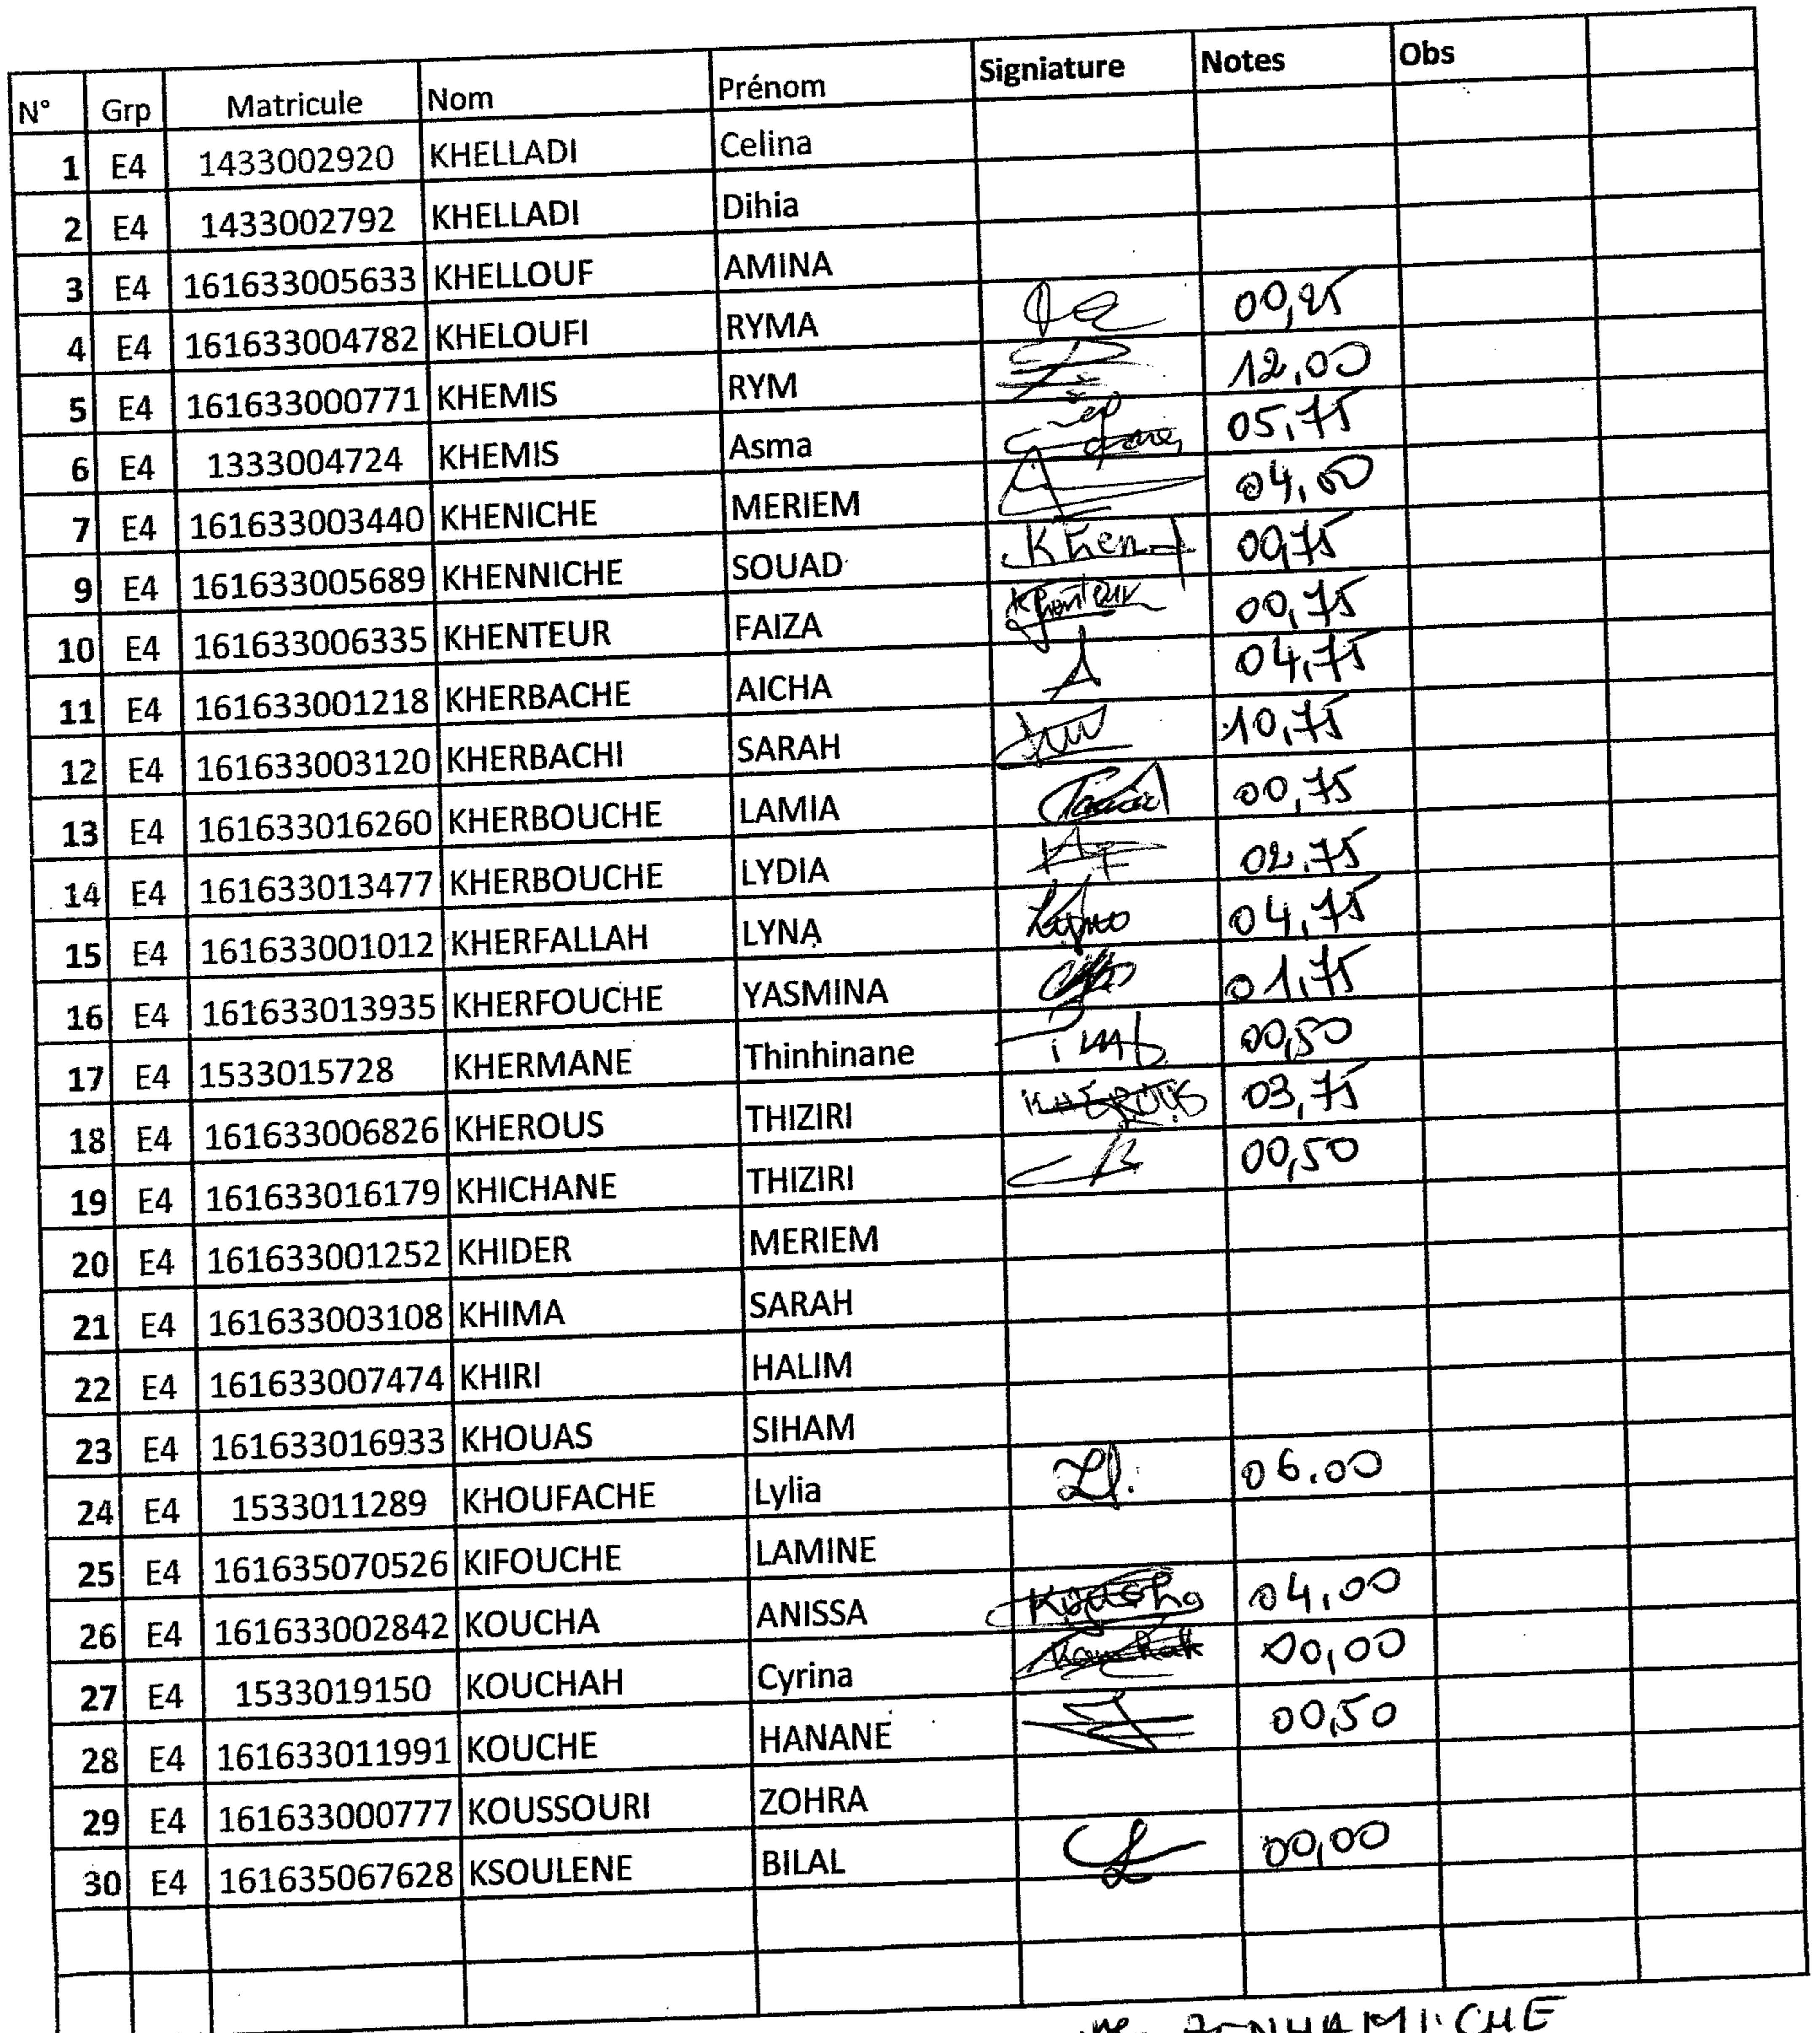 N° Grp Matricule Nom Prénom Signiature Notes Obs
1 E4 1433002920 KHELLADI Celina
2 E4 1433002792 KHELLADI Dihia
3 E4 161633005633 KHELLOUF AMINA
4 E4 161633004782 KHELOUFI RYMA 00,25
5 E4 161633000771 KHEMIS RYM 12,00
6 E4 1333004724 KHEMIS Asma 05,75
7 E4 161633003440 KHENICHE MERIEM 04,00
9 E4 161633005689 KHENNICHE SOUAD 00,75
10 E4 161633006335 KHENTEUR FAIZA Khenteur 00,75
11 E4 161633001218 KHERBACHE AICHA 04,75
12 E4 161633003120 KHERBACHI SARAH 10,75
13 E4 161633016260 KHERBOUCHE LAMIA 00,75
14 E4 161633013477 KHERBOUCHE LYDIA 02,75
15 E4 161633001012 KHERFALLAH LYNA 04,75
16 E4 161633013935 KHERFOUCHE YASMINA 01,75
17 E4 1533015728 KHERMANE Thinhinane 00,50
18 E4 161633006826 KHEROUS THIZIRI KHEROUS 03,75
19 E4 161633016179 KHICHANE THIZIRI 00,50
20 E4 161633001252 KHIDER MERIEM
21 E4 161633003108 KHIMA SARAH
22 E4 161633007474 KHIRI HALIM
23 E4 161633016933 KHOUAS SIHAM
24 E4 1533011289 KHOUFACHE Lylia 06.00
25 E4 161635070526 KIFOUCHE LAMINE
26 E4 161633002842 KOUCHA ANISSA Koucha 04,00
27 E4 1533019150 KOUCHAH Cyrina 00,00
28 E4 161633011991 KOUCHE HANANE 00,50
29 E4 161633000777 KOUSSOURI ZOHRA
30 E4 161635067628 KSOULENE BILAL 00,00